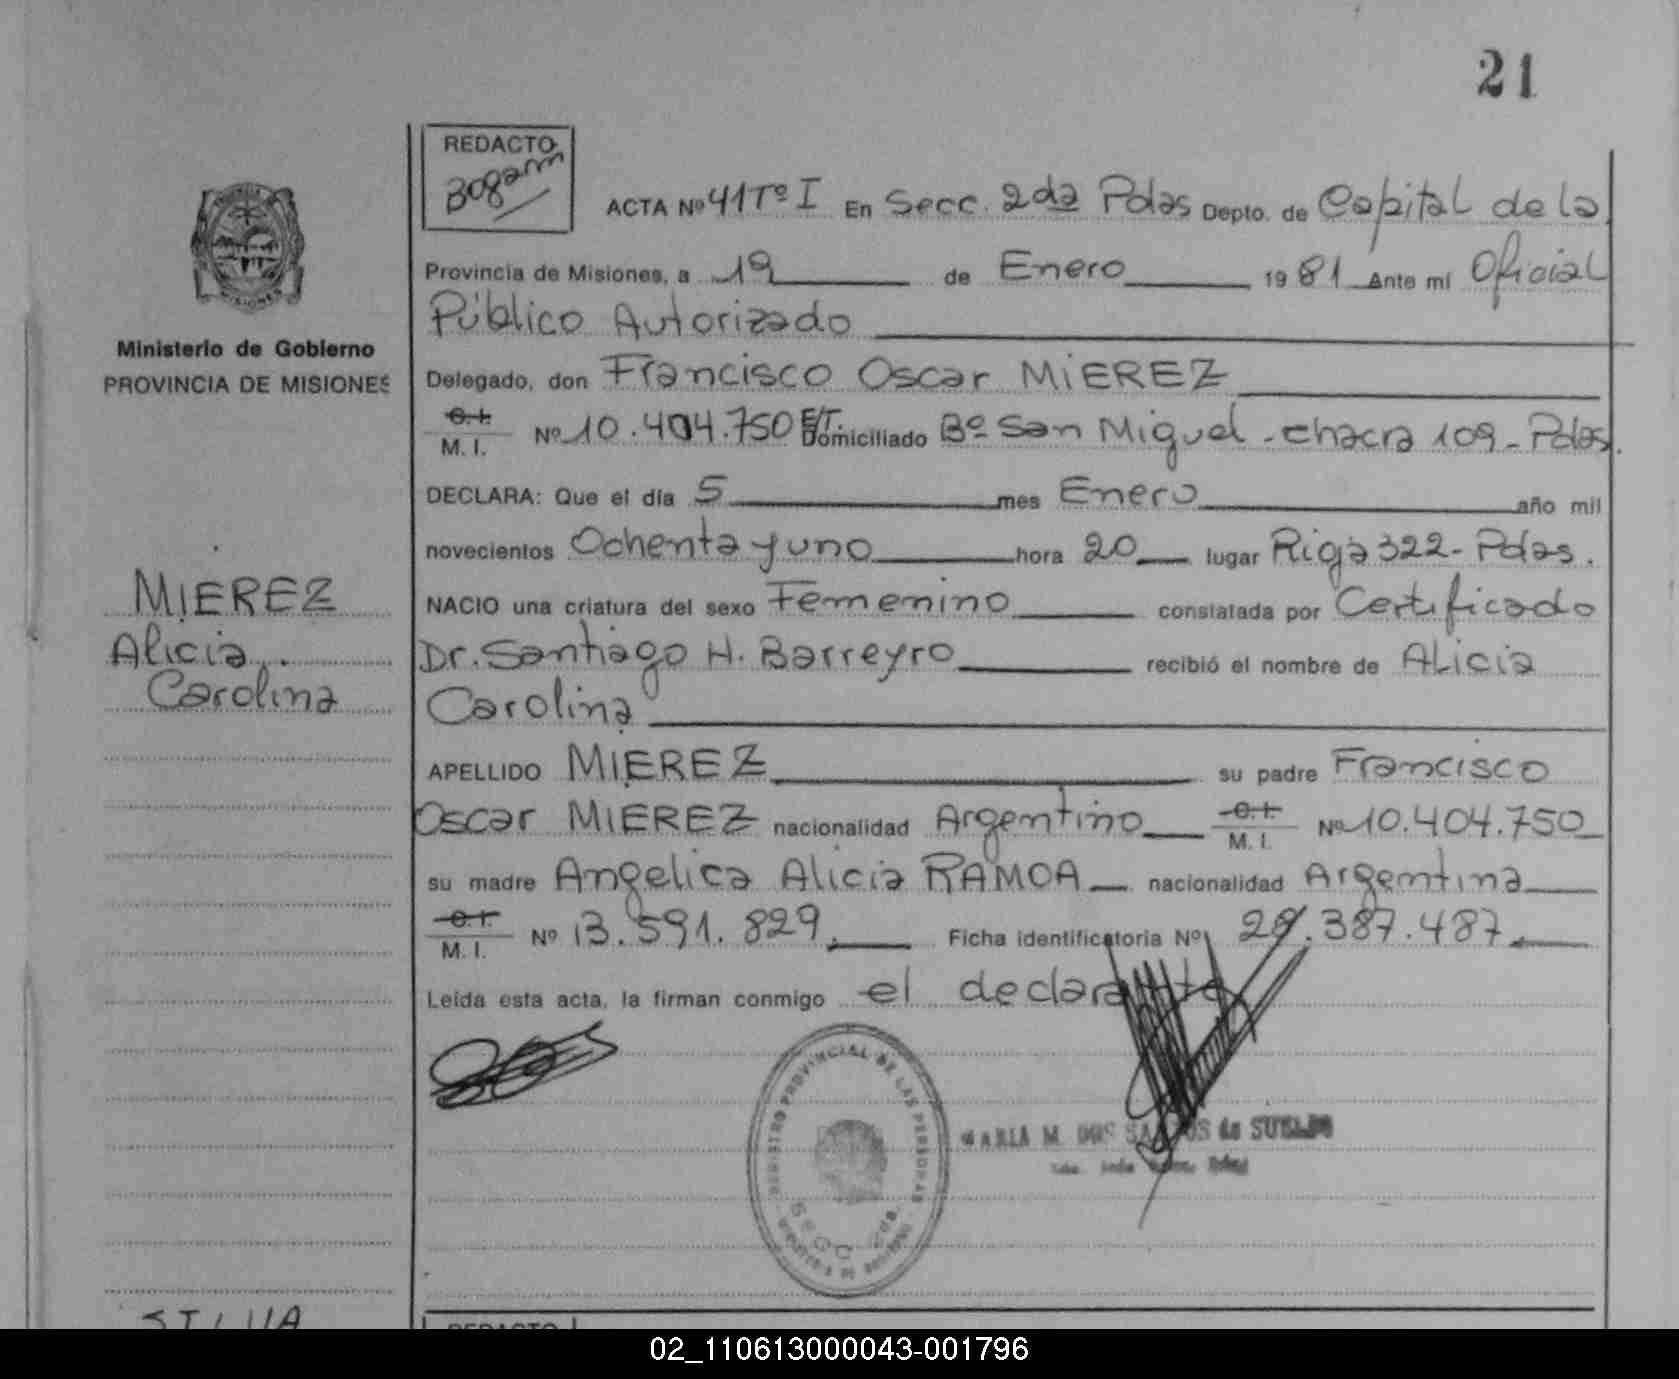 21
REDACTO
ACTA Nº 41 Tº I En Secc. 2da Pdas Depto. de Capital de la
Provincia de Misiones, a 19 de Enero 1981 Ante mi Oficial
Público Autorizado
Ministerio de Gobierno
PROVINCIA DE MISIONES
Delegado, don Francisco Oscar MIEREZ
C.I.
M. I. Nº 10.404.750 Domiciliado Bº San Miguel - chacra 109 - Pdas.
DECLARA: Que el día 5 mes Enero año mil
novecientos Ochenta y uno hora 20 lugar Rioja 322 - Pdas.
MIEREZ
Alicia
Carolina
NACIO una criatura del sexo Femenino constatada por Certificado
Dr. Santiago H. Barreyro recibió el nombre de Alicia
Carolina
APELLIDO MIEREZ su padre Francisco
Oscar MIEREZ nacionalidad Argentino C.I. M. I. Nº 10.404.750
su madre Angelica Alicia RAMOA nacionalidad Argentina
C.I.
M. I. Nº 13.591.829. Ficha identificatoria Nº 28.387.487.
Leída esta acta, la firman conmigo el declarante
REGISTRO PROVINCIAL DE LAS PERSONAS
MARIA M. DOS SANTOS de SUELDO
SILVA
REDACTO
02_110613000043-001796